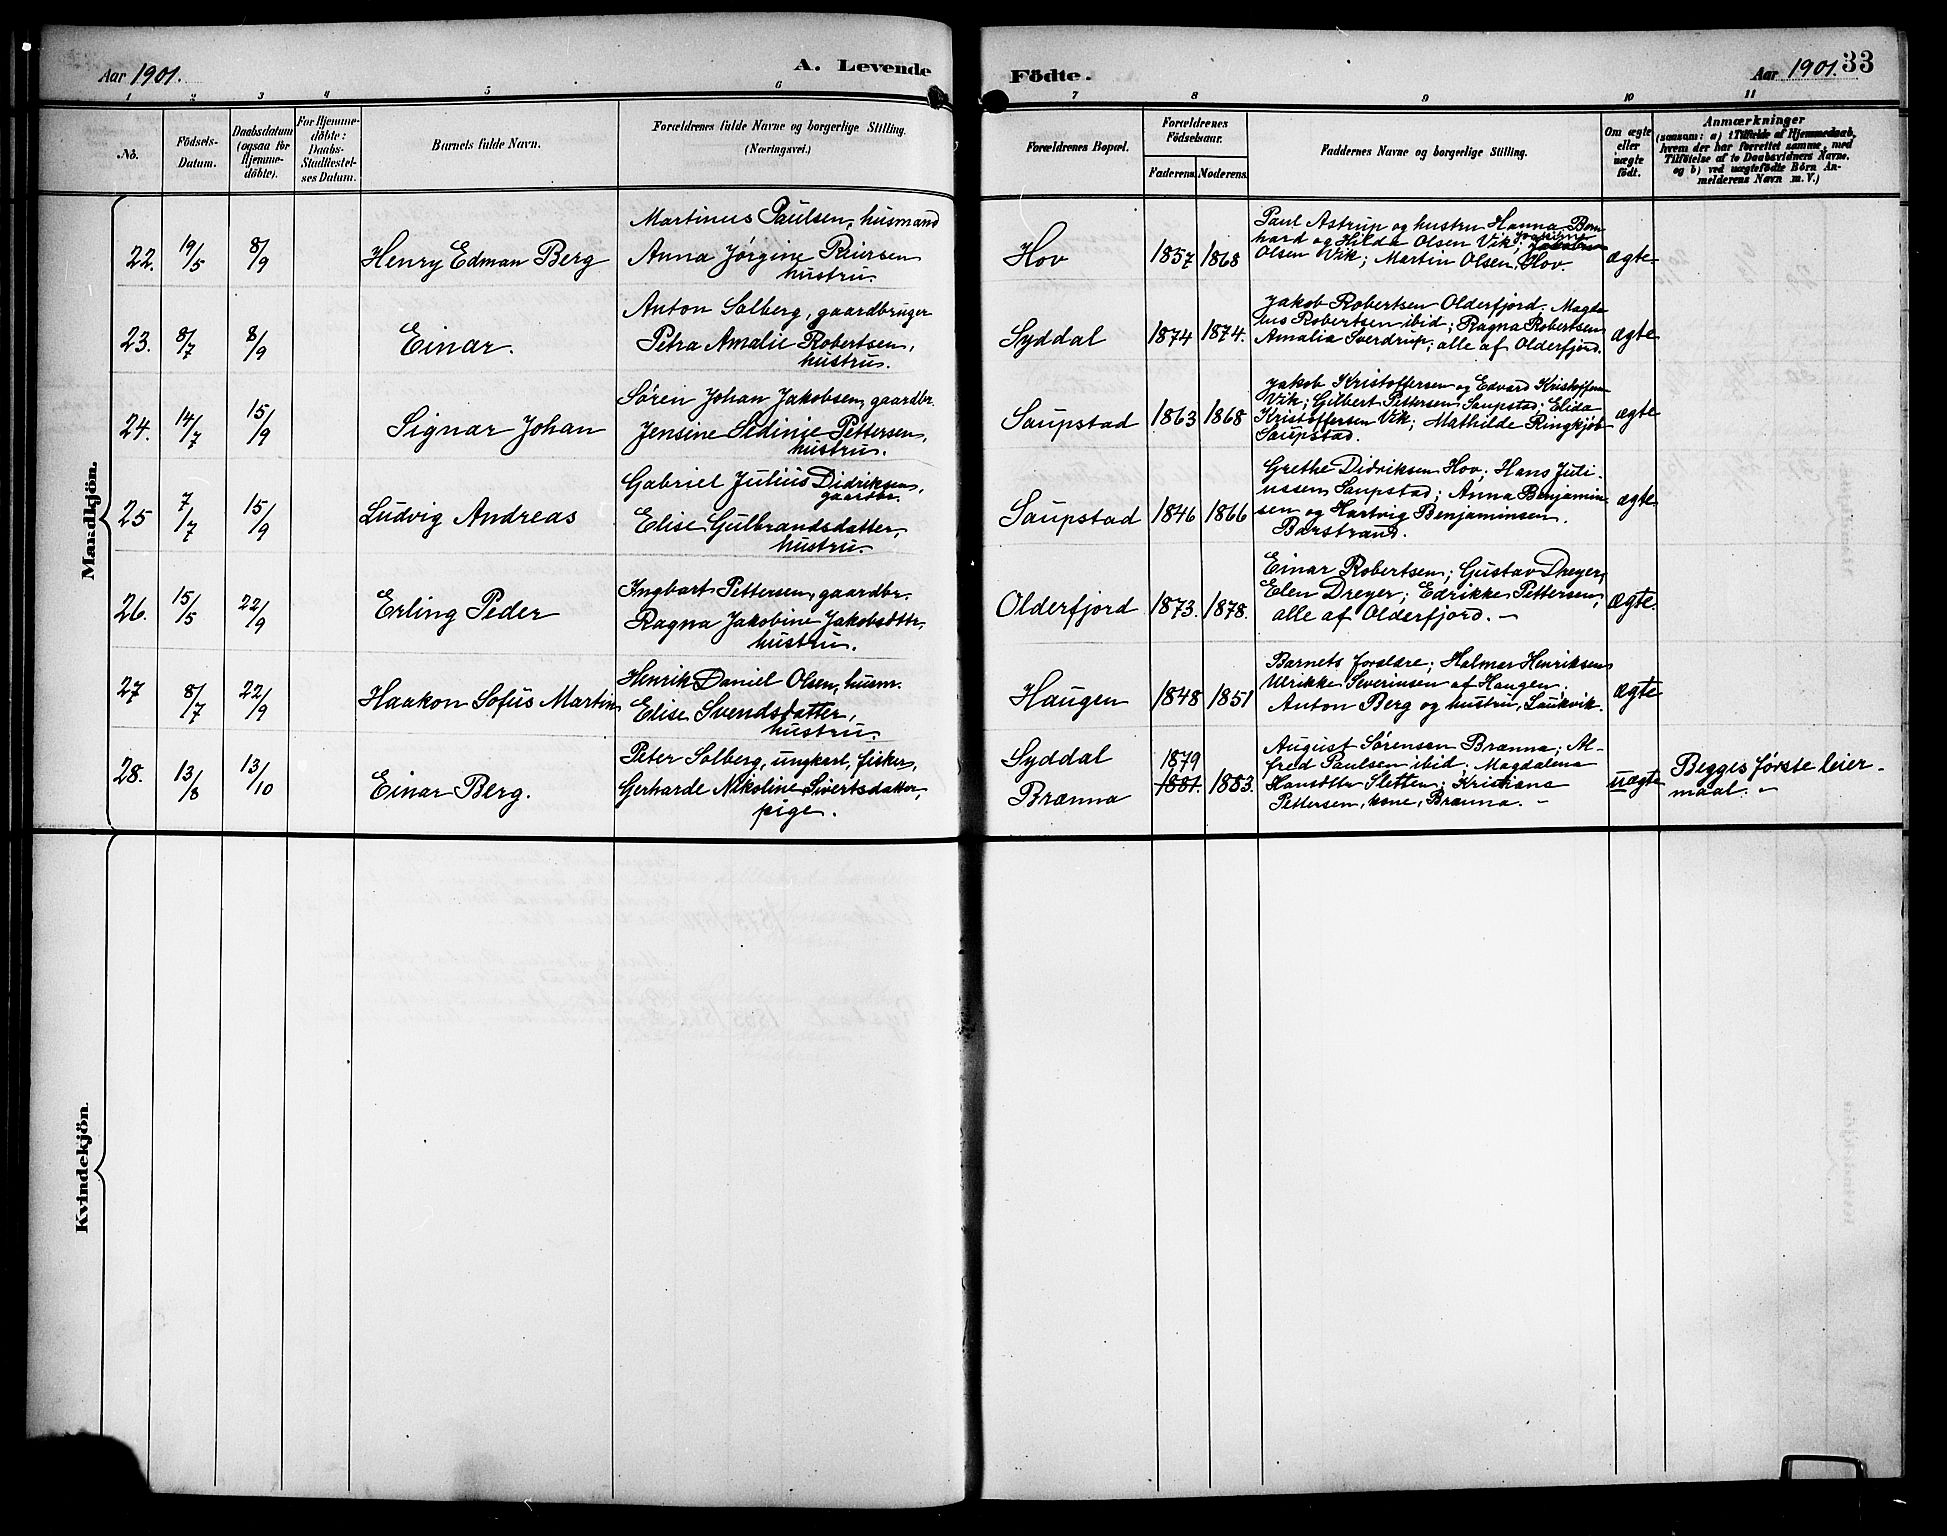 Aar 1901.
A. Levende
Födte.
Aar 1901. 33
1 2 3 4 5 6 7 8 9 10 11
No.
Födsels-
Datum.
Daabsdatum
(ogsaa for
Hjemme-
döbte).
For Hjemme-
döbte:
Daabs-
Stadfæstel-
ses Datum.
Barnets fulde Navn.
Forældrenes fulde Navne og borgerlige Stilling.
(Næringsvei.)
Forældrenes Bopæl.
Forældrenes
Födselsaar.
Faderens. Moderens.
Faddernes Navne og borgerlige Stilling.
Om ægte
eller
uægte
födt.
Anmærkninger
(saasom: a) i Tilfælde af Hjemmedaab,
hvem der har forrettet samme, med
Tilföielse af to Daabsvidners Navne,
og b) ved uægtefödte Börn An-
melderens Navn m. V.)
Mandkjön.
22. 19/5 8/9 Henry Edman Berg
Martinus Paulsen, husmand
Anna Jørgine Reiersen
hustru.
Hov 1857 1868
Paul Astrup og hustru Hanna Bern
hard og Hilda Olsen Vik;
Olsen Vik; Martin Olsen, Hov.
ægte
23. 8/7 8/9 Einar.
Anton Solberg, gaardbruger
Petra Amalie Robertsen,
hustru.
Syddal 1874 1874.
Jakob Robertsen Olderfjord; Magda
Robertsen ibid; Ragna Robertsen
Amalia Sverdrup; alle af Olderfjord.
ægte
24. 14/7 15/9 Signar Johan
Søren Johan Jakobsen, gaardbr.
Jensine Sedinie Pettersen,
hustru.
Saupstad 1863 1868
Jakob Kristoffersen og Edvard Kristoffersen
Vik; Gilbert Pettersen Saupstad; Elida
Kristoffersen Vik; Mathilde Ringkjøb
Saupstad.
ægte
25 7/7 15/9 Ludvig Andreas
Gabriel Julius Didriksen,
gaardbr.
Elise Gulbrandsdatter,
hustru.
Saupstad 1846 1866
Grethe Didriksen Hov; Hans Juli-
ussen Saupstad; Anna Benjamin
sen og Hartvig Benjaminsen.
Barstrand.
ægte
26. 15/5 22/9 Erling Peder
Ingbart Pettersen, gaardbr.
Ragna Jakobine Jakobsdttr,
hustru.
Olderfjord 1873. 1878.
Einar Robertsen; Gustav Dreyer;
Elen Dreyer; Edrikke Pettersen;
alle af Olderfjord. -
ægte.
27 8/7 22/9 Haakon Sofus Martin
Henrik Daniel Olsen, husm.
Elise Svendsdatter,
hustru.
Haugen 1848 1851
Barnets forældre; Halmar Henriksen
Ulrikke Severinsen af Haugen,
Anton Berg og hustru, Laukvik.
ægte
28. 13/8 13/10 Einar Berg.
Peter Solberg, ungkarl, fisker,
Gerharde Nikoline Sivertsdatter,
pige.
Syddal
Brænna
1879
1881. 1883.
August Sørensen Brænna; Al-
fred Paulsen ibid; Magdalena
Hansdtter Sletten; Kristiana
Pettersen, kone, Brænna. -
uægte
Begges første leier-
maal. -
Kvindekjön.